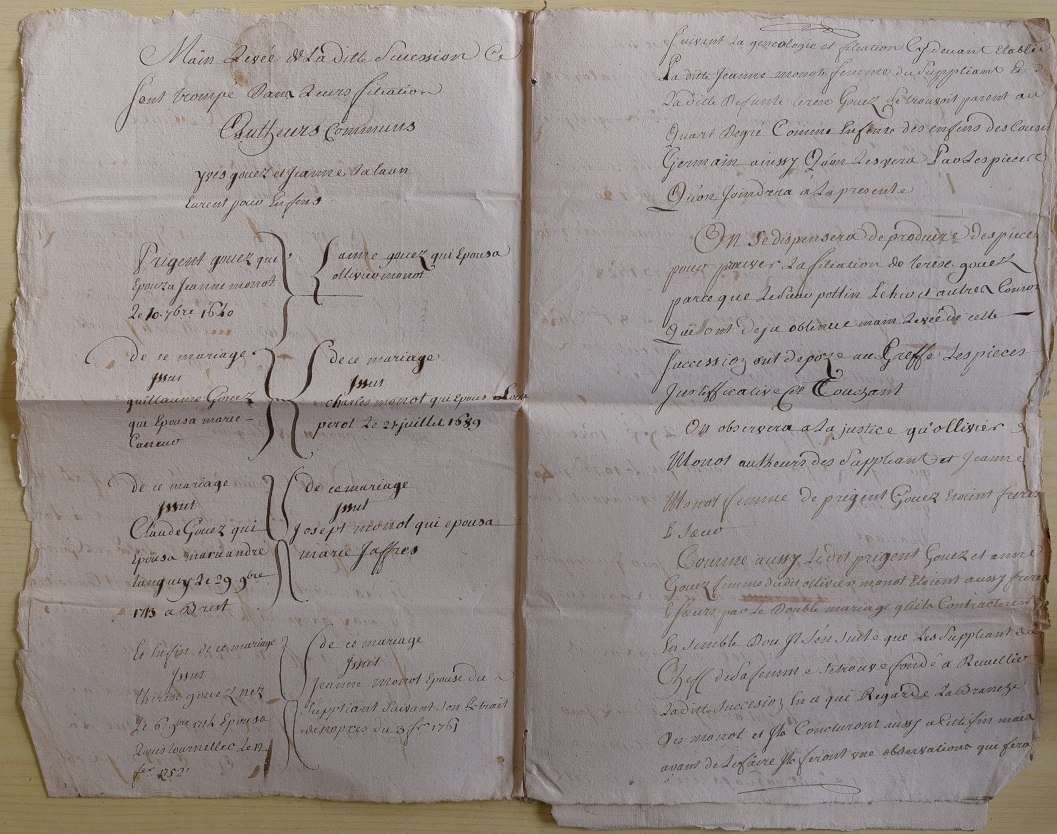 Main Levée de La ditte Sucession Ce
sont trompé Dans Leurs filiation
Autheurs Communs
yves gouez et Jeanne talaun
Eurent pour Enfens
Prigent gouez qui
Epouza Jeanne monot
Le 10. 7bre 1640
anne gouez qui Epousa
ollivier monot
de ce mariage
Issut
guillaume Gouez
qui Epousa marie
de ce mariage
Issut
charles monot qui Epousa
perot Le 21 juillet 1689
de ce mariage
Issut
Claude Gouez qui
Epousa marie andre
tanguy Le 29 9bre
1713 a Brest
de ce mariage
Issut
Josept monot qui epousa
marie Jaffres
Et Enfin de ce mariage
Issut
therese gouez nez
Le 6 9bre 1714 Epousa
Louis tournellec Le 12
fer 1752
de ce mariage
Issut
Jeanne monot Epouse du
Suppliant Suivant Son Extrait
de nopces du 3 fer 1761
Suivent La genealogie et filiation Cy devant Etablie
La ditte Jeanne monot femme du Suppliant Et
La ditte Defunte terese Gouez Se trouvoit parent au
Quart Degré Comme Enfens des enfens des Cousin
Germain ainssy Qu'on Les vera Par Les pieces
Qu'on Joindra a La presente
On Se dispensera de produire des pieces
pour prouver La filiation de terese gouez
parce que Le Sieur pottin et autres
Qui ont deja obtenue main Levée de cette
Succession ont depozé au Greffe Les pieces
Justifficative Ce Touchant
On observera a La justice qu'ollivier
Monot autheurs des Suppliant et Jeanne
Monot femme de prigent Gouez Etoient freres
& Soeur
Comme aussy Ledit prigent Gouez et anne
Gouez femme dudit ollivier monot Etoient aussy freres
& Soeurs par Le Double mariage qu'ils Contracterent
Ensemble Dou Il S'en suite que Les Suppliant du
Cheff de Sa femme Se trouve fondé a Receullir
La ditte Succesion En ce qui Regarde La Branche
Des monot et Ils Concluront aussy a Cette fin mais
avant de Le faire Ils feront une observations qui fera